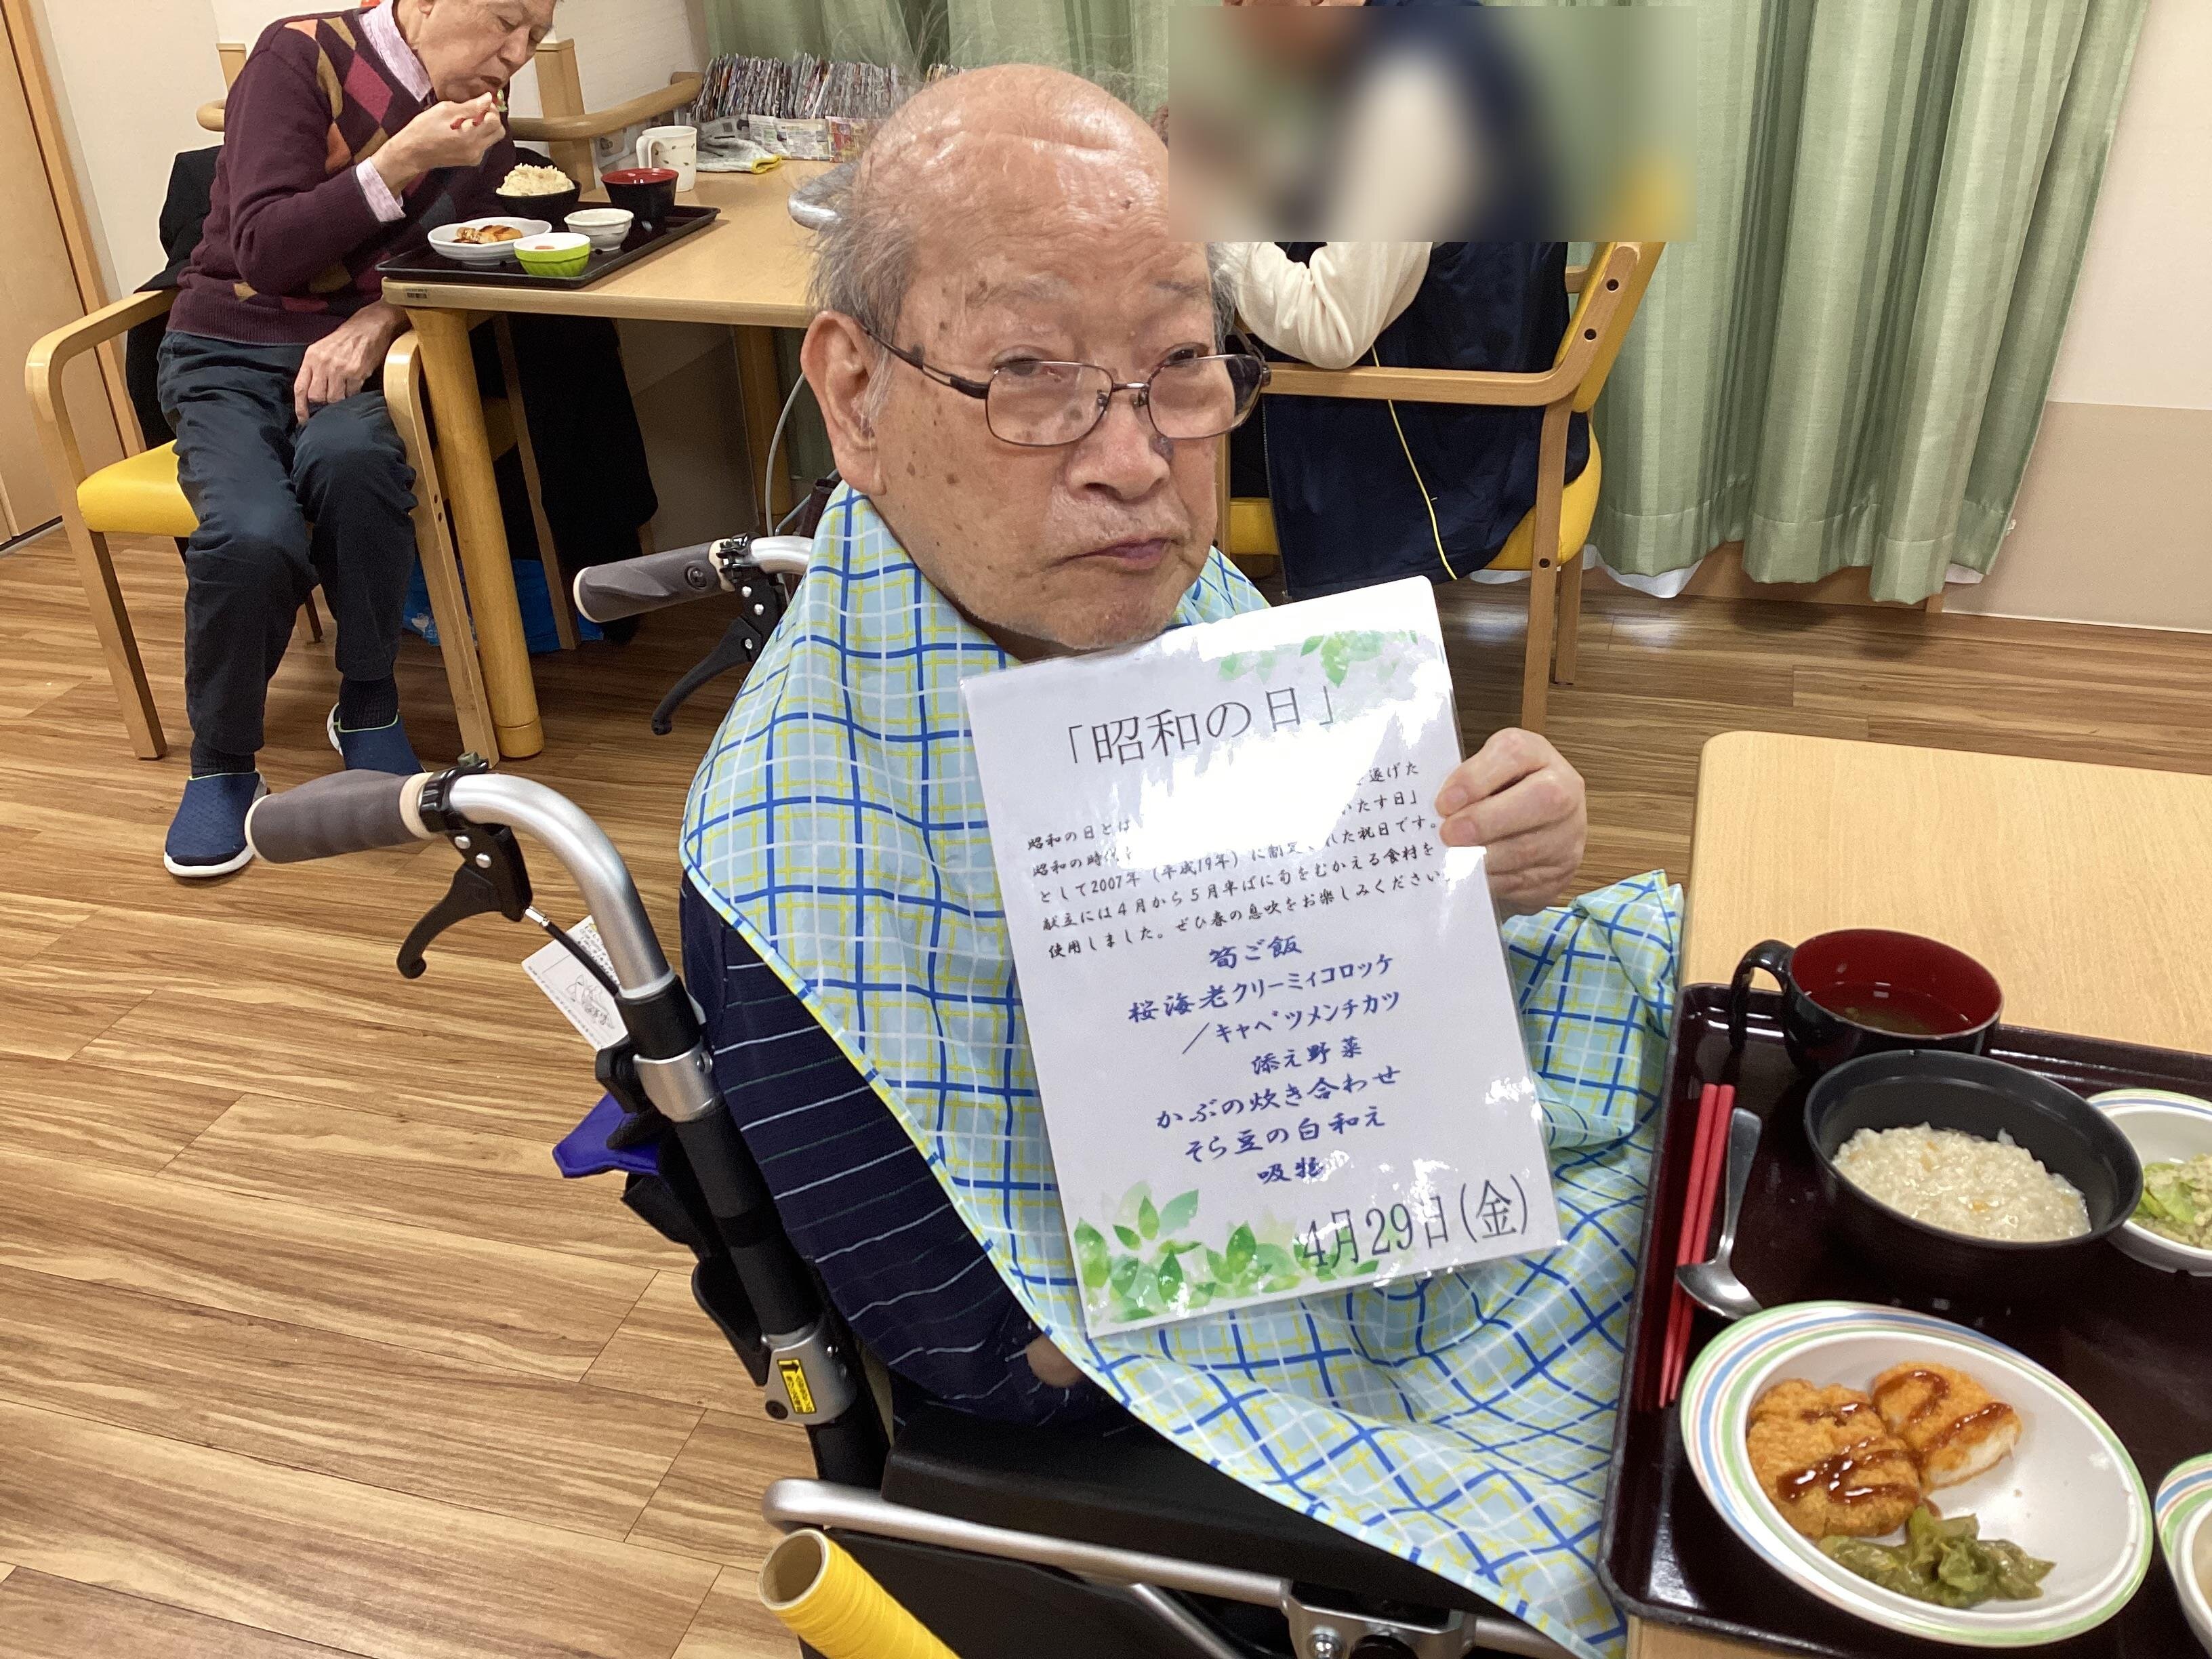 「昭和の日」
昭和の日とは 遂げた
昭和の時代 いたす日」
として2007年（平成19年）に制定された祝日です。
献立には４月から５月半ばに旬をむかえる食材を
使用しました。ぜひ春の息吹をお楽しみください。
筍ご飯
桜海老クリーミィコロッケ
／キャベツメンチカツ
添え野菜
かぶの炊き合わせ
そら豆の白和え
吸物
4月29日(金)